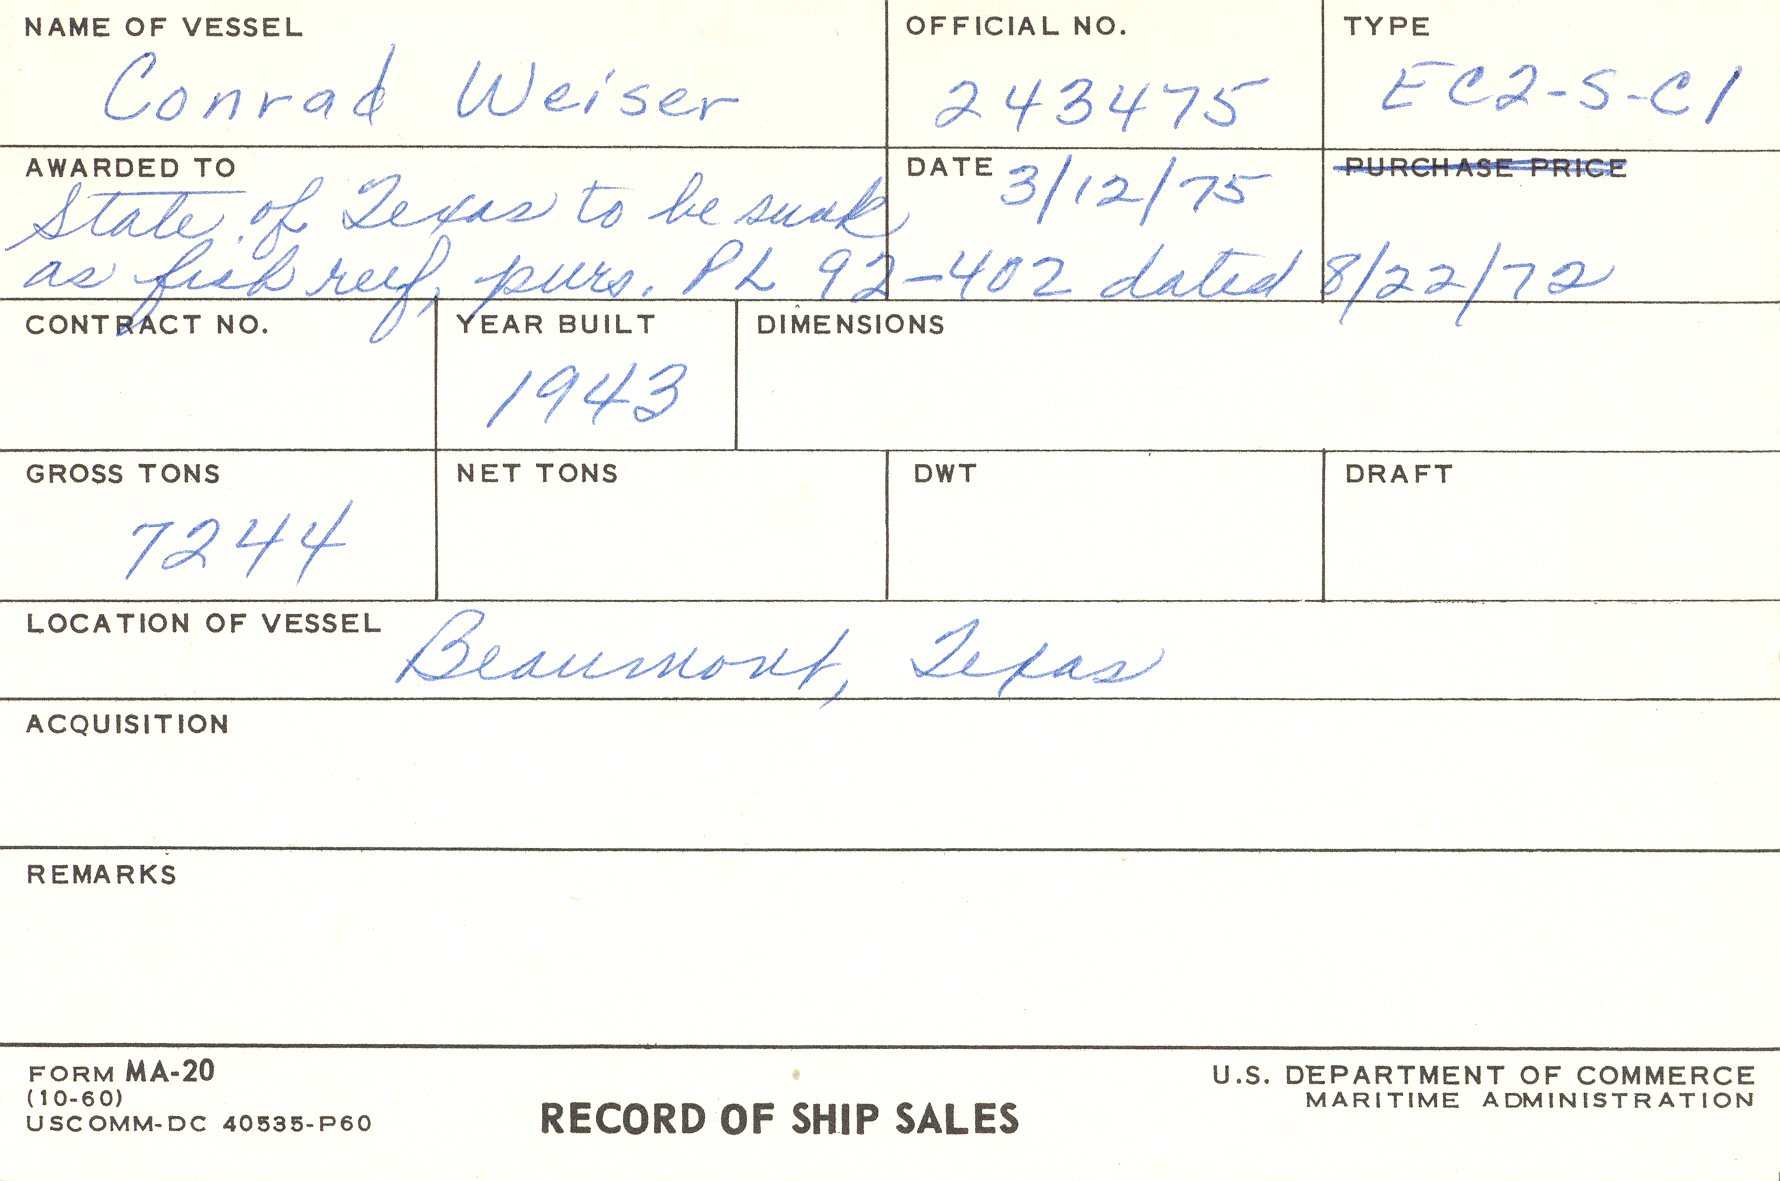 NAME OF VESSEL OFFICIAL NO. TYPE
Conrad Weiser 243475 EC2-S-C1
AWARDED TO DATE 3/12/75 PURCHASE PRICE
State of Texas to be sunk
as fish reef, purs. PL 92-402 dated 8/22/72
CONTRACT NO. YEAR BUILT DIMENSIONS
1943
GROSS TONS NET TONS DWT DRAFT
7244
LOCATION OF VESSEL
Beaumont, Texas
ACQUISITION
REMARKS
FORM MA-20
(10-60)
USCOMM-DC 40535-P60
RECORD OF SHIP SALES
U.S. DEPARTMENT OF COMMERCE
MARITIME ADMINISTRATION